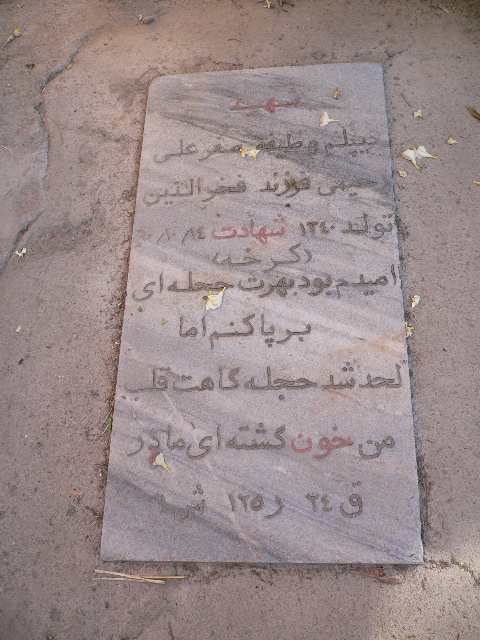 شهید
دیپلم وظیفه صفر علی
رحیمی فرزند فخرالدین
تولد ۱۳٤۰ شهادت
(کرخه)
امیدم بود بهرت حجله ای
برپا کنم اما
لحد شد حجله گاهت قلب
من خون گشته ای مادر
ق ۲٤ ر ۱۲۵ ش